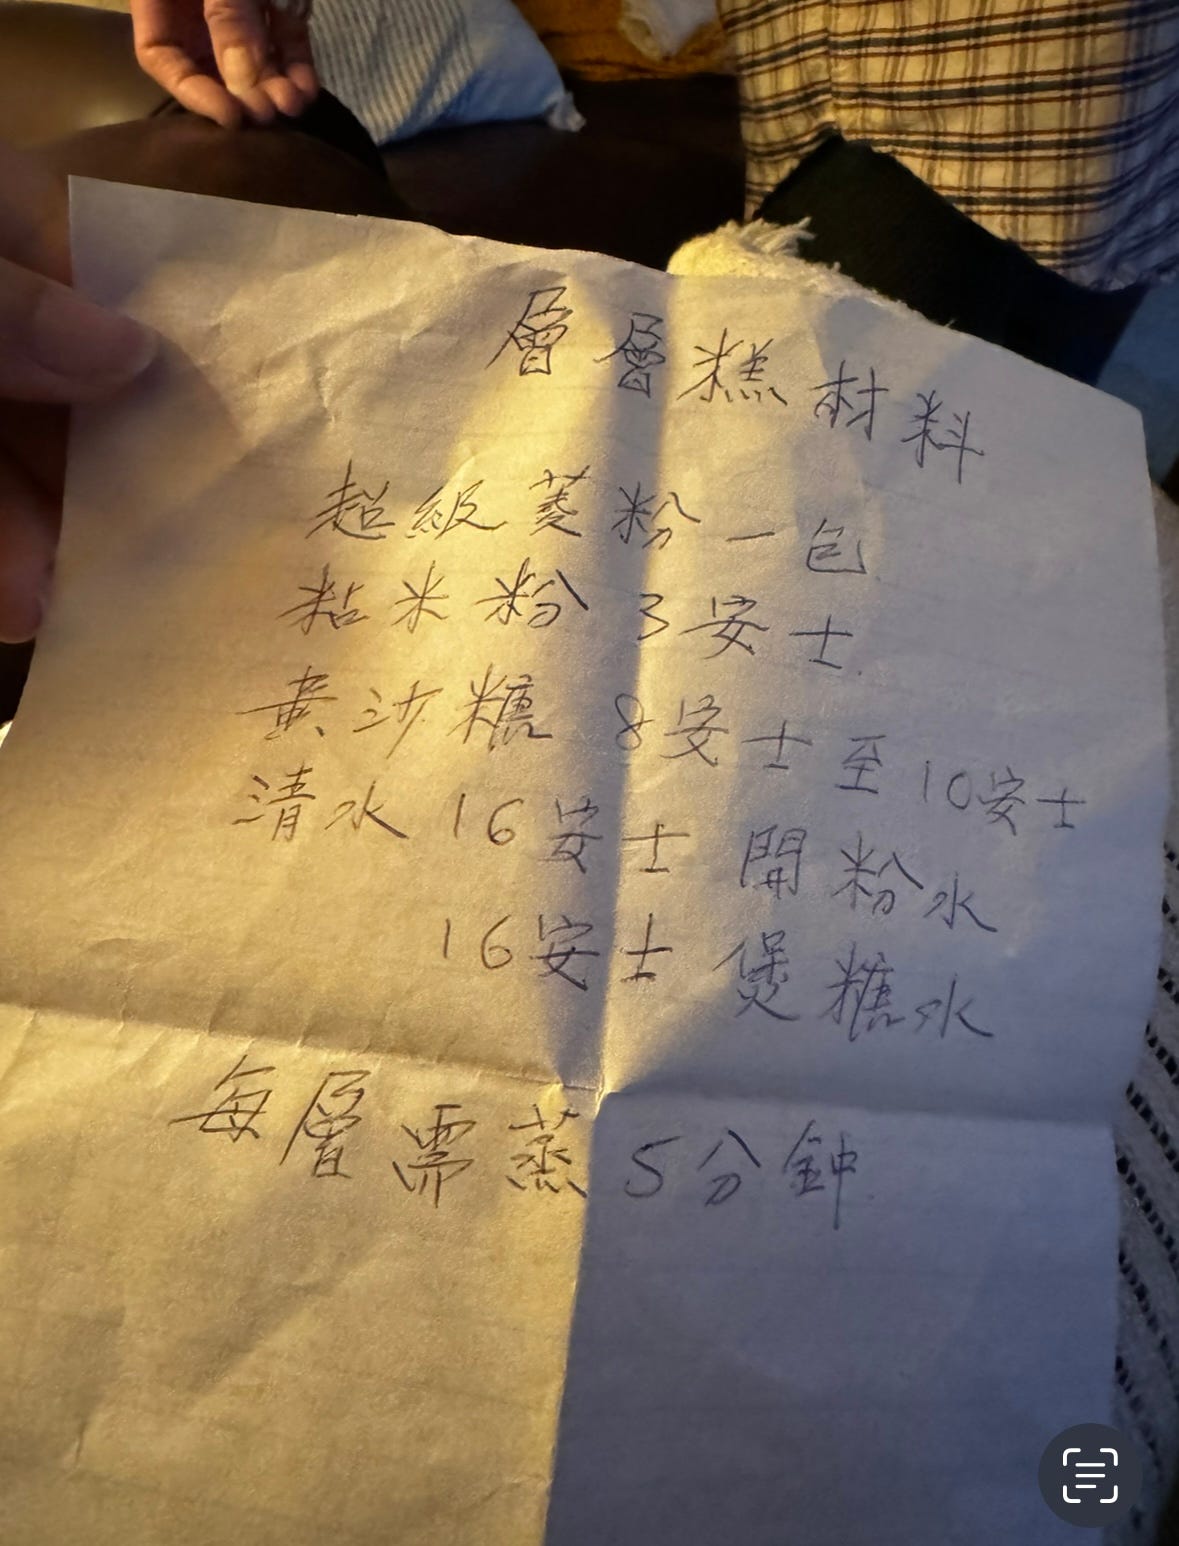 層層糕材料
超級菱粉一包
粘米粉 3安士
黃沙糖 8安士至10安士
清水 16安士 開粉水
16安士 煲糖水
每層需蒸5分鐘